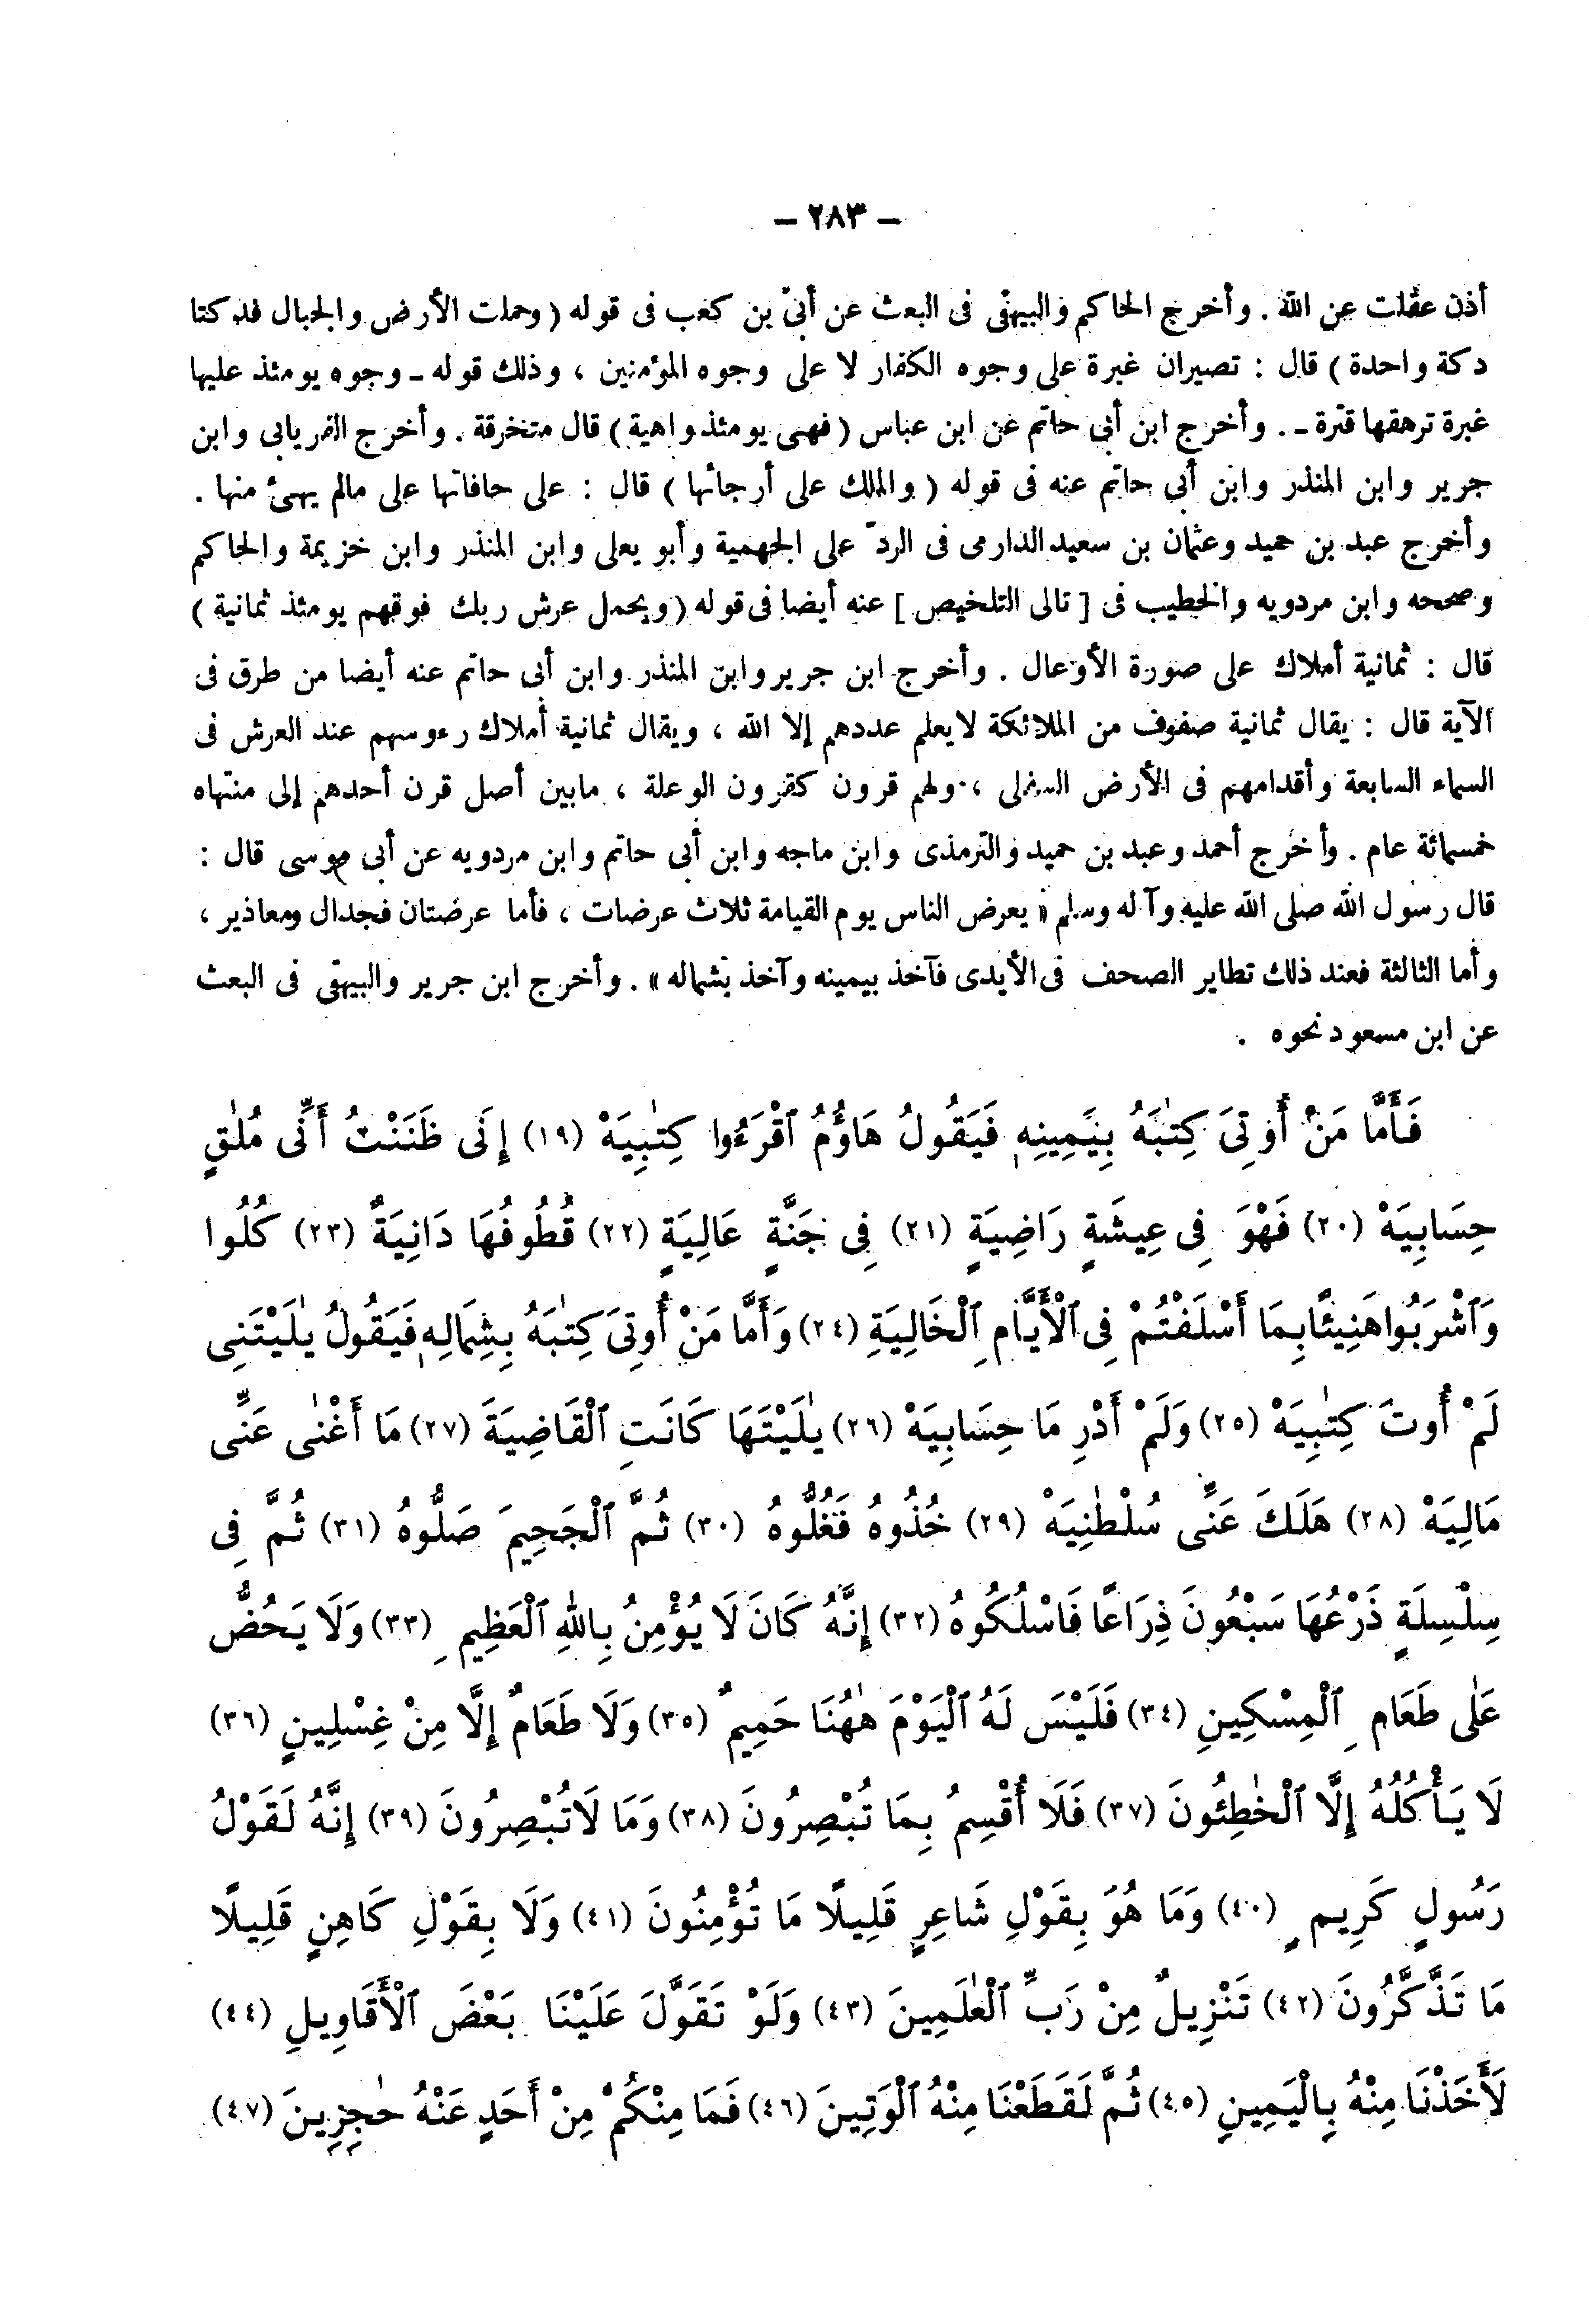 - ٢٨٣ -
أذن عقلت عن الله . وأخرج الحاكم والبيهقى فى البعث عن أبىّ بن كعب فى قوله ( وحملت الأرض والجبال فدكتا
دكة واحدة ) قال : تصيران غبرة على وجوه الكفار لا على وجوه المؤمنين ، وذلك قوله ـ وجوه يومئذ عليها
غبرة ترهقها قترة ـ . وأخرج ابن أبى حاتم عن ابن عباس ( فهى يومئذ واهية ) قال متخرقة . وأخرج الفريابى وابن
جرير وابن المنذر وابن أبى حاتم عنه فى قوله ( والملك على أرجائها ) قال : على حافاتها على مالم يهئ منها .
وأخرج عبد بن حميد وعثمان بن سعيد الدارمى فى الردّ على الجهمية وأبو يعلى وابن المنذر وابن خزيمة والحاكم
وصححه وابن مردويه والخطيب فى [ تالى التلخيص ] عنه أيضا فى قوله ( ويحمل عرش ربك فوقهم يومئذ ثمانية )
قال : ثمانية أملاك على صورة الأوعال . وأخرج ابن جرير وابن المنذر وابن أبى حاتم عنه أيضا من طرق فى
الآية قال : يقال ثمانية صفوف من الملائكة لايعلم عددهم إلا الله ، ويقال ثمانية أملاك رءوسهم عند العرش فى
السماء السابعة وأقدامهم فى الأرض السفلى ، ولهم قرون كقرون الوعلة ، مابين أصل قرن أحدهم إلى منتهاه
خمسمائة عام . وأخرج أحمد وعبد بن حميد والترمذى وابن ماجه وابن أبى حاتم وابن مردويه عن أبى موسى قال :
قال رسول الله صلى الله عليه وآله وسلم « يعرض الناس يوم القيامة ثلاث عرضات ، فأما عرضتان فجدال ومعاذير ،
وأما الثالثة فعند ذلك تطاير الصحف فى الأيدى فآخذ بيمينه وآخذ بشماله » . وأخرج ابن جرير والبيهقى فى البعث
عن ابن مسعود نحوه .
فَأَمَّا مَنْ أُوتِىَ كِتٰبَهُ بِيَمِينِهِ فَيَقُولُ هَاؤُمُ ٱقْرَءُوا كِتٰبِيَهْ (١٩) إِنِّى ظَنَنْتُ أَنِّى مُلٰقٍ
حِسَابِيَهْ (٢٠) فَهْوَ فِى عِيشَةٍ رَاضِيَةٍ (٢١) فِى جَنَّةٍ عَالِيَةٍ (٢٢) قُطُوفُهَا دَانِيَةٌ (٢٣) كُلُوا
وَٱشْرَبُوا هَنِيئًا بِمَا أَسْلَفْتُمْ فِى ٱلْأَيَّامِ ٱلْخَالِيَةِ (٢٤) وَأَمَّا مَنْ أُوتِىَ كِتٰبَهُ بِشِمَالِهِ فَيَقُولُ يٰلَيْتَنِى
لَمْ أُوتَ كِتٰبِيَهْ (٢٥) وَلَمْ أَدْرِ مَا حِسَابِيَهْ (٢٦) يٰلَيْتَهَا كَانَتِ ٱلْقَاضِيَةَ (٢٧) مَا أَغْنٰى عَنِّى
مَالِيَهْ (٢٨) هَلَكَ عَنِّى سُلْطٰنِيَهْ (٢٩) خُذُوهُ فَغُلُّوهُ (٣٠) ثُمَّ ٱلْجَحِيمَ صَلُّوهُ (٣١) ثُمَّ فِى
سِلْسِلَةٍ ذَرْعُهَا سَبْعُونَ ذِرَاعًا فَاسْلُكُوهُ (٣٢) إِنَّهُ كَانَ لَا يُؤْمِنُ بِاللهِ ٱلْعَظِيمِ (٣٣) وَلَا يَحُضُّ
عَلٰى طَعَامِ ٱلْمِسْكِينِ (٣٤) فَلَيْسَ لَهُ ٱلْيَوْمَ هٰهُنَا حَمِيمٌ (٣٥) وَلَا طَعَامٌ إِلَّا مِنْ غِسْلِينٍ (٣٦)
لَا يَأْكُلُهُ إِلَّا ٱلْخٰطِئُونَ (٣٧) فَلَا أُقْسِمُ بِمَا تُبْصِرُونَ (٣٨) وَمَا لَا تُبْصِرُونَ (٣٩) إِنَّهُ لَقَوْلُ
رَسُولٍ كَرِيمٍ (٤٠) وَمَا هُوَ بِقَوْلِ شَاعِرٍ قَلِيلًا مَا تُؤْمِنُونَ (٤١) وَلَا بِقَوْلِ كَاهِنٍ قَلِيلًا
مَا تَذَّكَّرُونَ (٤٢) تَنْزِيلٌ مِنْ رَبِّ ٱلْعٰلَمِينَ (٤٣) وَلَوْ تَقَوَّلَ عَلَيْنَا بَعْضَ ٱلْأَقَاوِيلِ (٤٤)
لَأَخَذْنَا مِنْهُ بِالْيَمِينِ (٤٥) ثُمَّ لَقَطَعْنَا مِنْهُ ٱلْوَتِينَ (٤٦) فَمَا مِنْكُمْ مِنْ أَحَدٍ عَنْهُ حٰجِزِينَ (٤٧)